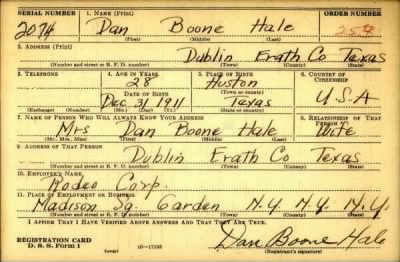 SERIAL NUMBER 1. NAME (Print) ORDER NUMBER
2074 Dan Boone Hale
(First) (Middle) (Last)
2. ADDRESS (Print)
Dublin Erath Co Texas
(Number and street or R. F. D. number) (Town) (County) (State)
3. TELEPHONE 4. AGE IN YEARS 5. PLACE OF BIRTH 6. COUNTRY OF CITIZENSHIP
28 Huston
DATE OF BIRTH (Town or county)
Dec. 31 1911 Texas U.S.A
(Exchange) (Number) (Mo.) (Day) (Yr.) (State or country)
7. NAME OF PERSON WHO WILL ALWAYS KNOW YOUR ADDRESS 8. RELATIONSHIP OF THAT PERSON
Mrs Dan Boone Hale Wife
(Mr., Mrs., Miss) (First) (Middle) (Last)
9. ADDRESS OF THAT PERSON
Dublin Erath Co Texas
(Number and street or R. F. D. number) (Town) (County) (State)
10. EMPLOYER'S NAME
Rodeo Corp.
11. PLACE OF EMPLOYMENT OR BUSINESS
Madison Sq. Garden N.Y. N.Y. N.Y.
(Number and street or R. F. D. number) (Town) (County) (State)
I AFFIRM THAT I HAVE VERIFIED ABOVE ANSWERS AND THAT THEY ARE TRUE.
REGISTRATION CARD
D. S. S. Form 1 (over) 16—17105 Dan Boone Hale
(Registrant's signature)